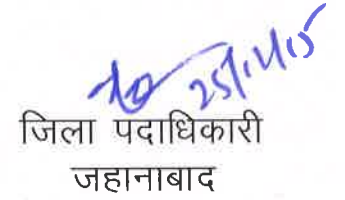 25/11/15
जिला पदाधिकारी
जहानाबाद